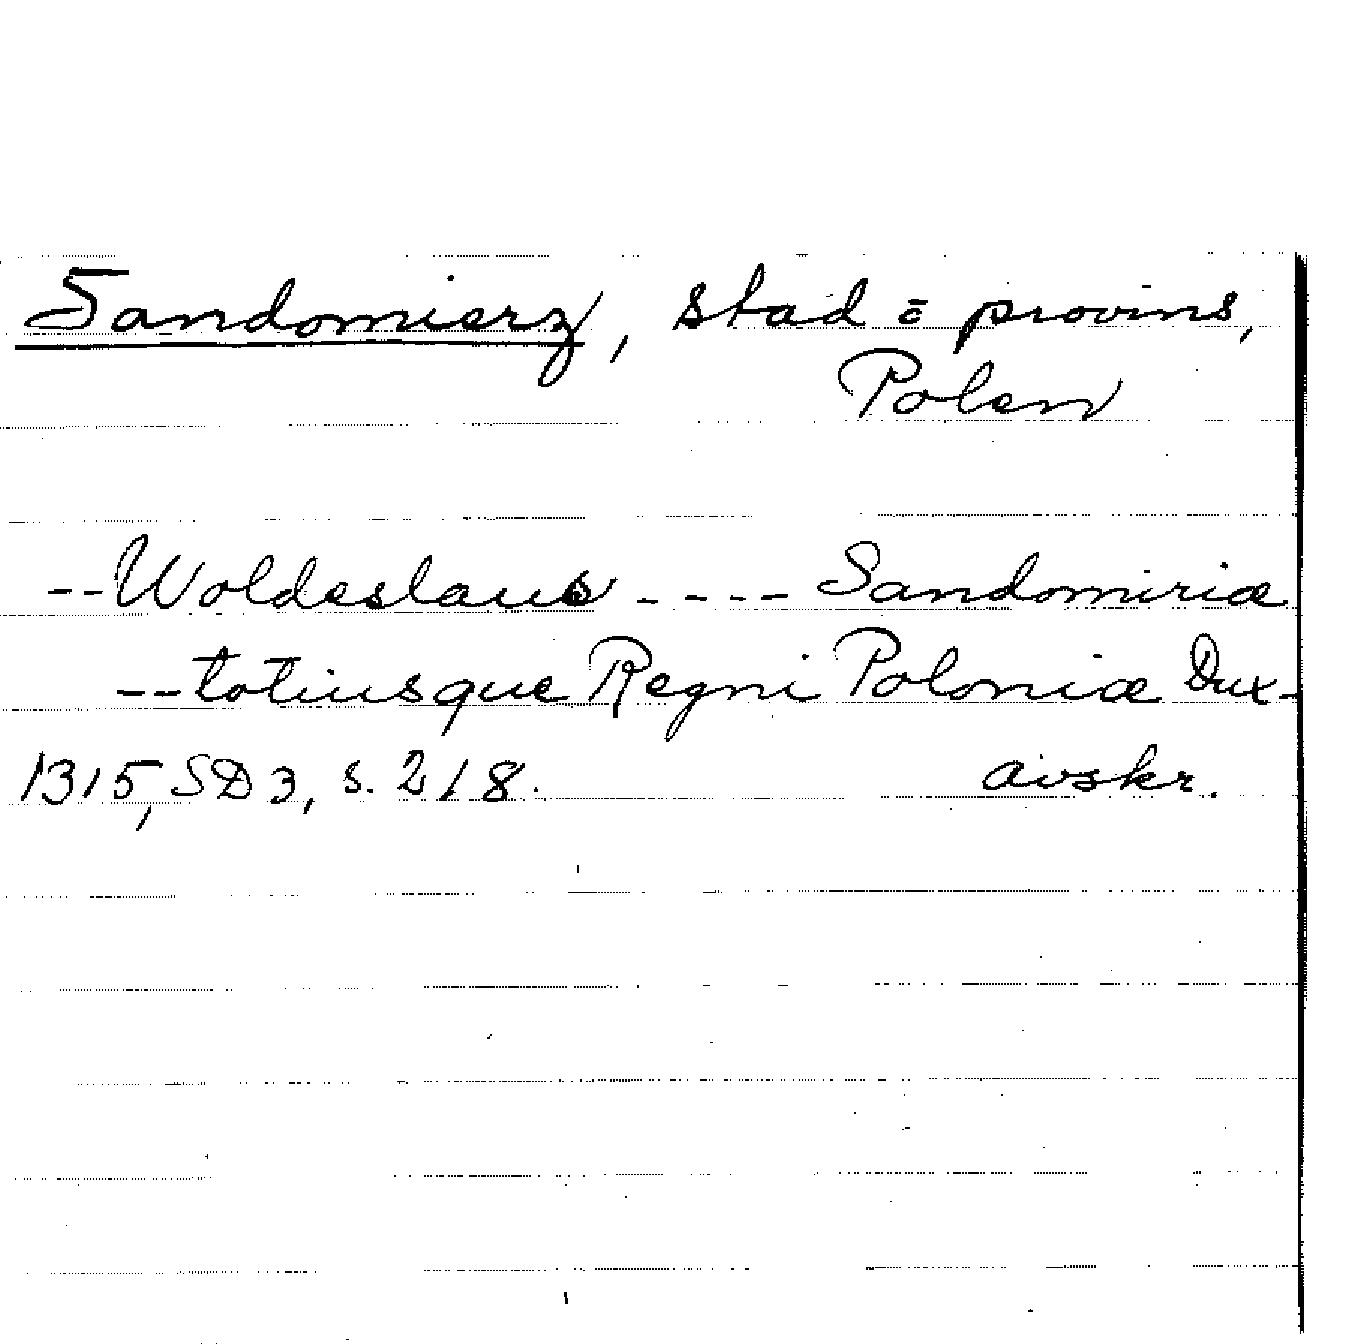 Sandomierz, stad o provins,
Polen
-- Woldeslaus ---- Sandomiriæ
-- totiusque Regni Poloniæ Dux -
1315, SD 3, s. 218. avskr.